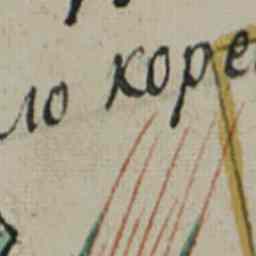 ло коре